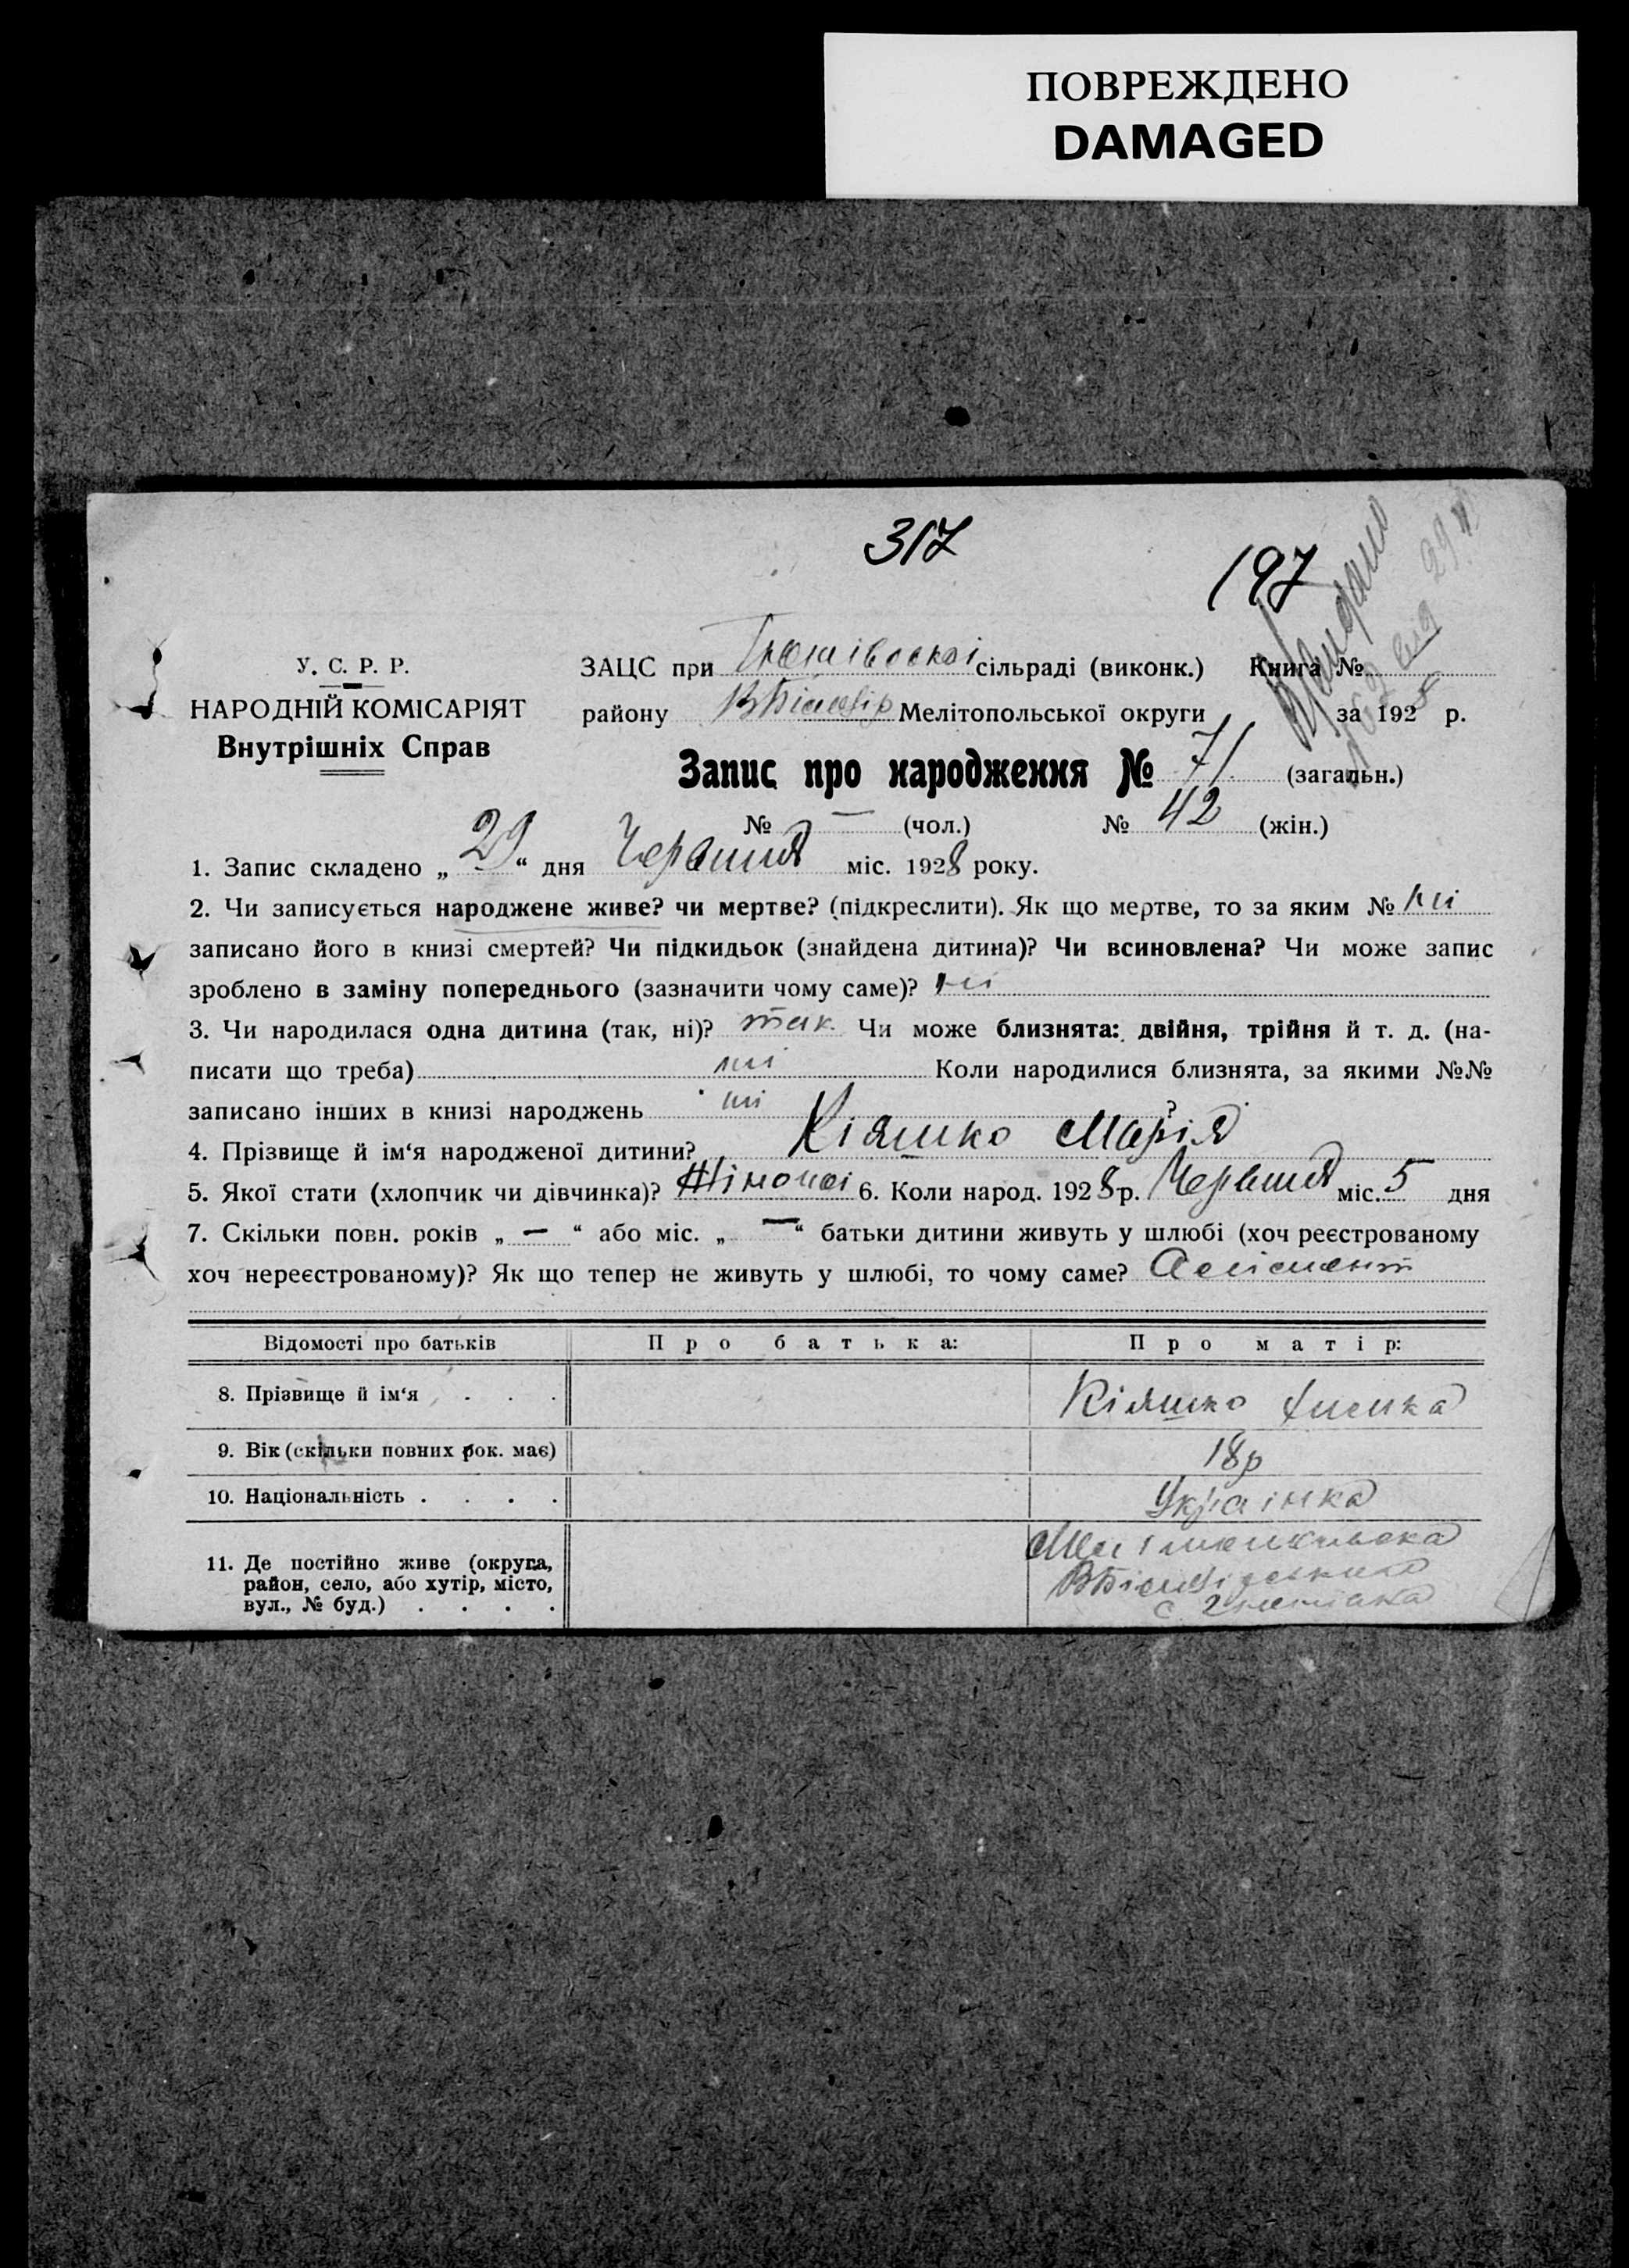 ПОВРЕЖДЕНО
DAMAGED
317
197
У. С. Р. Р.
НАРОДНІЙ КОМІСАРІЯТ
Внутрішніх Справ
ЗАЦС при сільраді (виконк.) Книга №
району Мелітопольської округи за 1928 р.
Запис про народження № 71 (загальн.)
№ — (чол.) № 42 (жін.)
1. Запис складено „29“ дня Червня міс. 1928 року.
2. Чи записується народжене живе? чи мертве? (підкреслити). Як що мертве, то за яким № ні
записано його в книзі смертей? Чи підкидьок (знайдена дитина)? Чи всиновлена? Чи може запис
зроблено в заміну попереднього (зазначити чому саме)? ні
3. Чи народилася одна дитина (так, ні)? так Чи може близнята: двійня, трійня й т. д. (на-
писати що треба) ні Коли народилися близнята, за якими №№
записано інших в книзі народжень ні ?
4. Прізвище й ім‘я народженої дитини? Кіяшко Марія
5. Якої стати (хлопчик чи дівчинка)? 6. Коли народ. 1928 р. Червня міс. 5 дня
7. Скільки повн. років „ — “ або міс. „ — “ батьки дитини живуть у шлюбі (хоч реєстрованому
хоч нереєстрованому)? Як що тепер не живуть у шлюбі, то чому саме?
Відомості про батьків Про батька: Про матір:
8. Прізвище й ім‘я . . . Кіяшко
9. Вік (скільки повних рок. має) 18р
10. Національність . . . . Українка
11. Де постійно живе (округа,
район, село, або хутір, місто,
вул., № буд.) . . . .